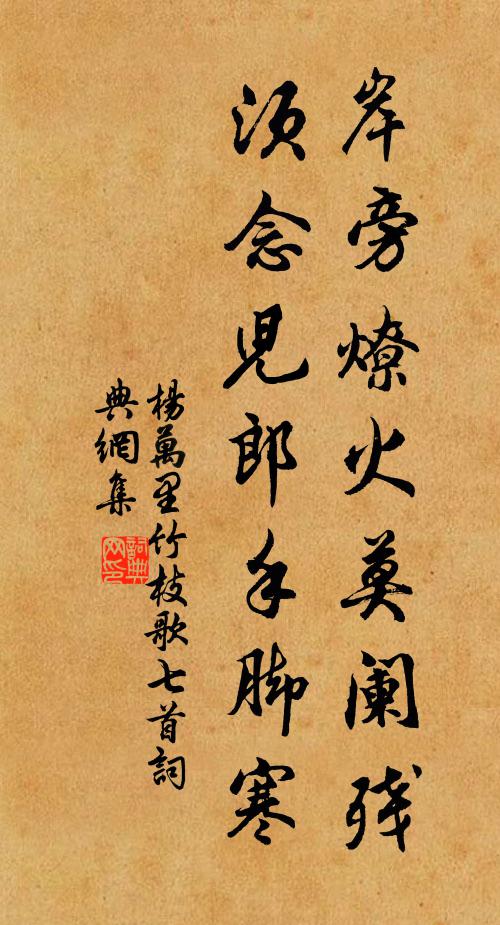 岸旁燎火莫阑残
须念児郎手脚寒
楊萬里竹枝歌七首詞
典網集
詞典
网印